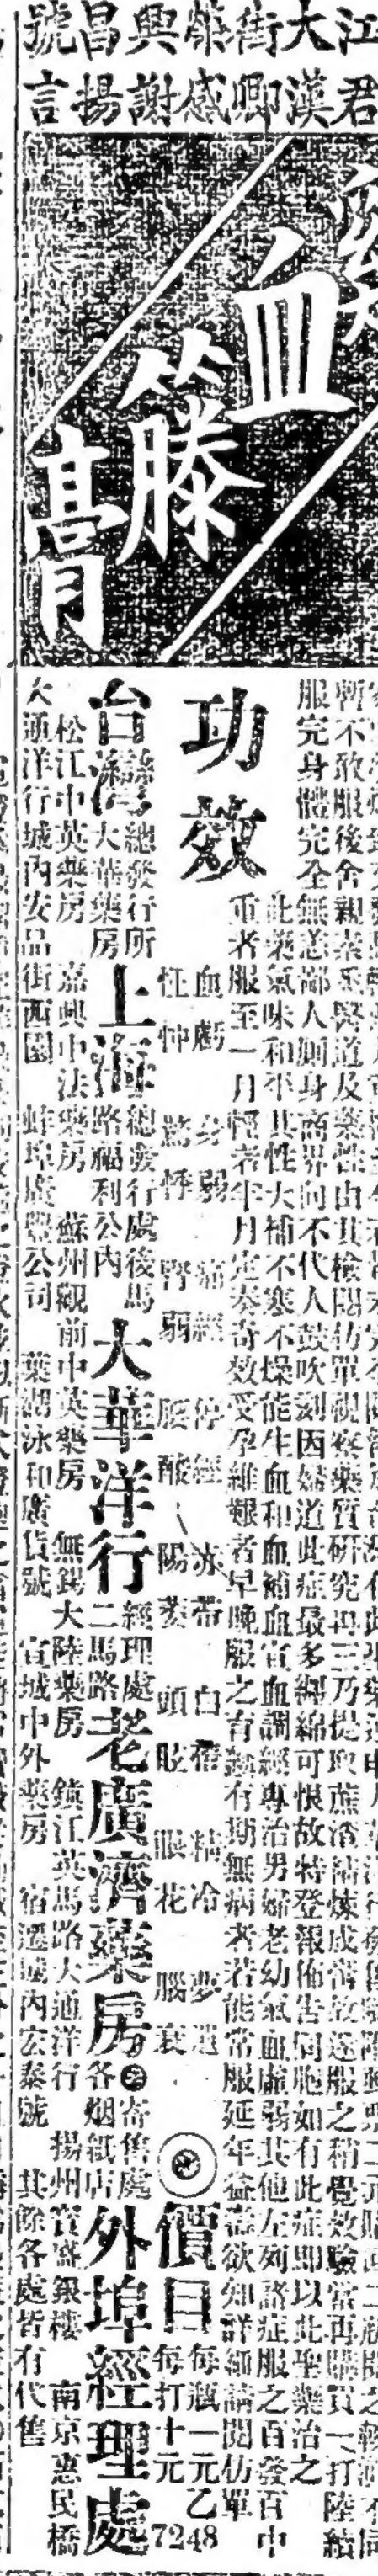 江大街榮興昌號
君漢卿感謝揚言
雞血籐膏
暫不敢服後舍親素乐醫道及藥性由其檢閱仿單視察藥質研究再三乃提取蔗渣結煉成膏故逐服之稍覺效驗當再購買一打陸續
服完身體完全無恙鄙人廁身商界向不代人鼓吹刻因婦道此症最多纏綿可恨故特登報佈告同胞如有此症即以此聖藥治之
功效
此藥氣味和平其性大補不寒不燥能生血和血補血宣血調經專治男婦老幼氣血虛弱其他左列諸症服之百發百中
重者服至一月輕者半月定奏奇效受孕維艱者早晚服之育麟有期無病者若能常服延年益壽欲知詳細請閱仿單
血虧 身弱 痛經 停經 赤帶 白帶 精冷 夢遺
怔忡 驚悸 腎弱 腿酸 陽萎 頭眩 眼花 腦衰
價目 每瓶一元乙 每打十元 7248
台灣 總發行所 大華藥房
上海 總發行處後馬路福利公內 大華洋行
經理處二馬路 老廣濟藥房
之寄售處各烟紙店
外埠經理處
松江中英藥房 嘉興中法藥房 蘇州觀前中英藥房 無錫大陸藥房 鎮江英馬路大通洋行 揚州寶盛銀樓 南京惠民橋
大通洋行城內安品街西園 蚌埠廣豐公司 蕪湖泳和廣貨號 宣城中外藥房 宿遷國內宏泰號 其餘各處皆有代售